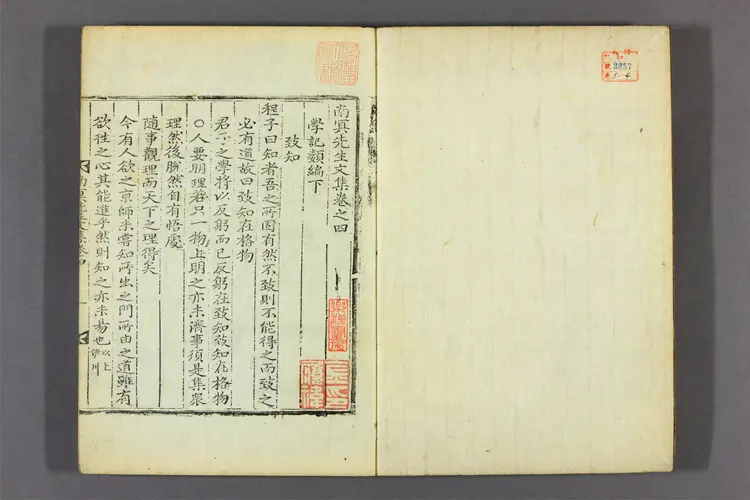 南冥先生文集卷之四
學記類編下
致知
程子曰知者吾之所固有然不致則不能得之而致之
必有道故曰致知在格物
君子之學將以反躬而已反躬在致知致知在格物
○人要明理若只一物上明之亦未濟事須是集衆
理然後脱然自有悟處
隨事觀理而天下之理得矣
今有人欲之京師未嘗知所出之門所由之道雖有
欲往之心其能進乎然則知之亦未易也以上伊川
3257
5-4